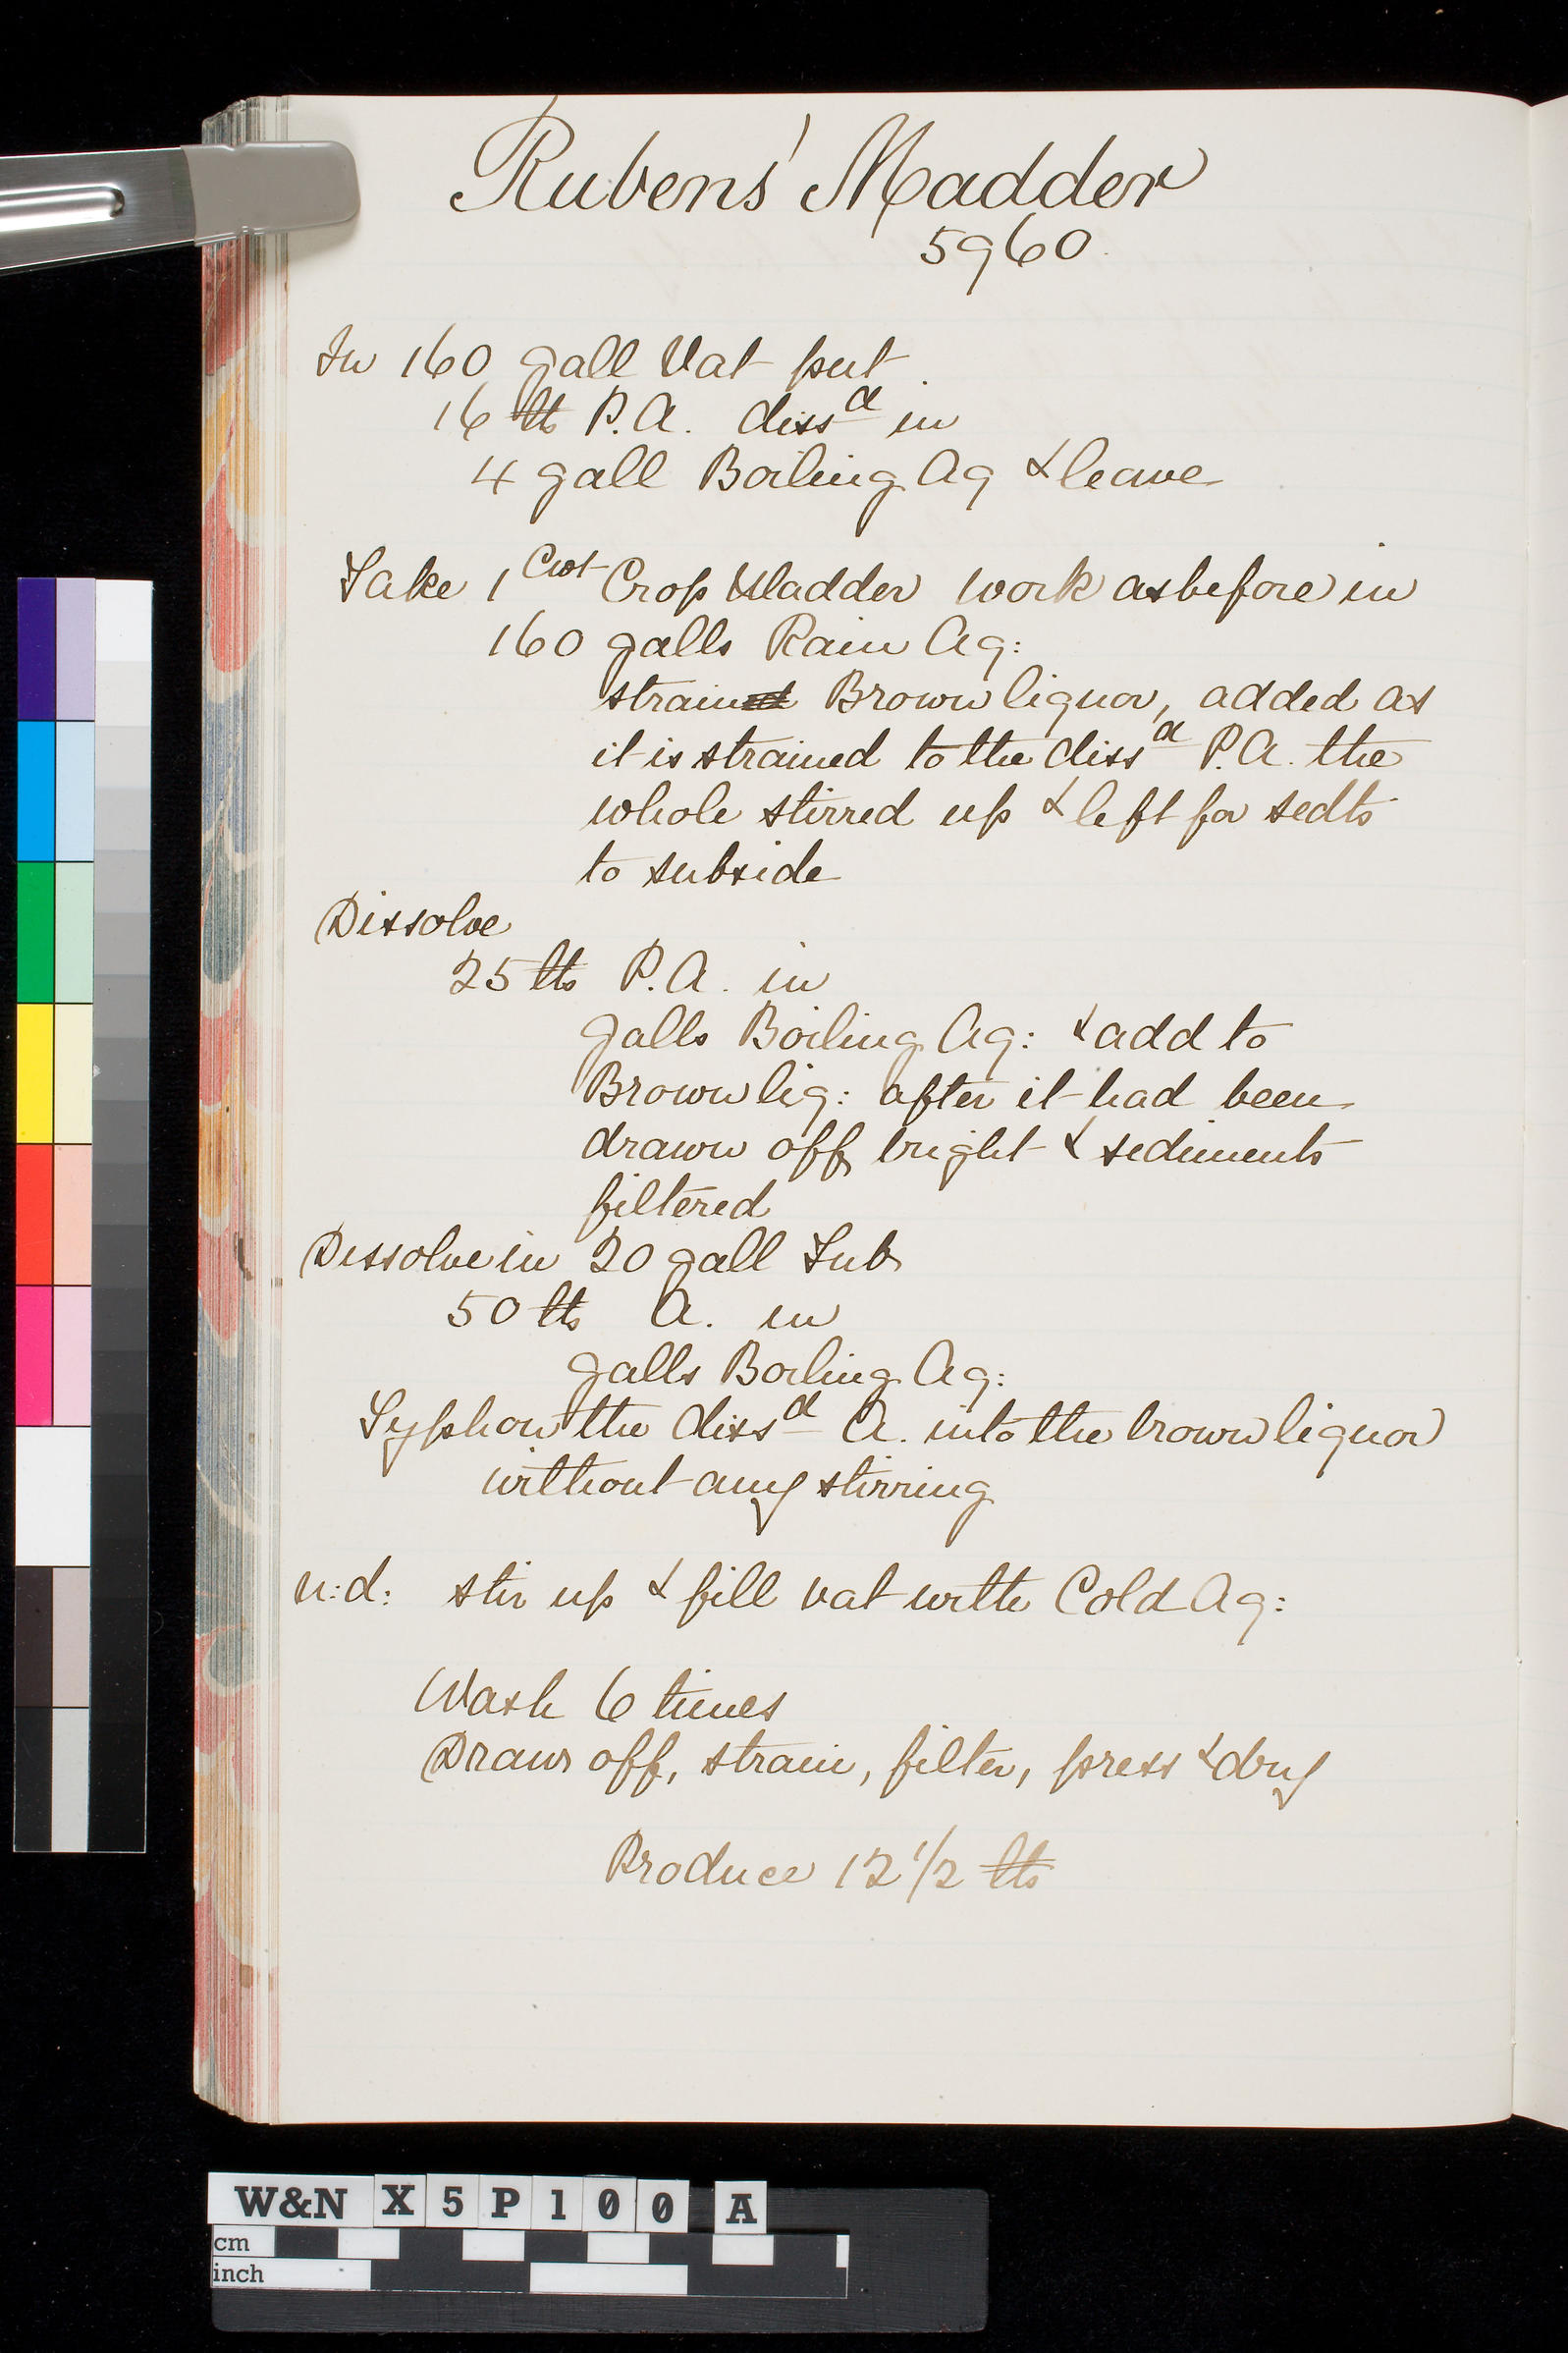 Rubens' Madder
5960.
In 160 gall Vat put
16 lbs P.A. dissd in
4 gall Boiling Aq & leave
Take 1 Cwt Crop Madder work as before in
160 galls Rain Aq:
strained Brown liquor, added as
it is strained to the dissd P.A. the
whole stirred up & left for sedts
to subside
Dissolve
25 lbs P.A. in
galls Boiling Aq: & add to
Brown liq: after it had been
drawn off bright & sediments
filtered
Dissolve in 20 gall Tub
50 lbs A. in
galls Boiling Aq:
Syphon the dissd A. into the brown liquor
without any stirring
n:d: stir up & fill vat with Cold Aq:
Wash 6 times
Draw off, strain, filter, press & dry
Produce 12 1/2 lbs
W&N X5P100 A
cm
inch